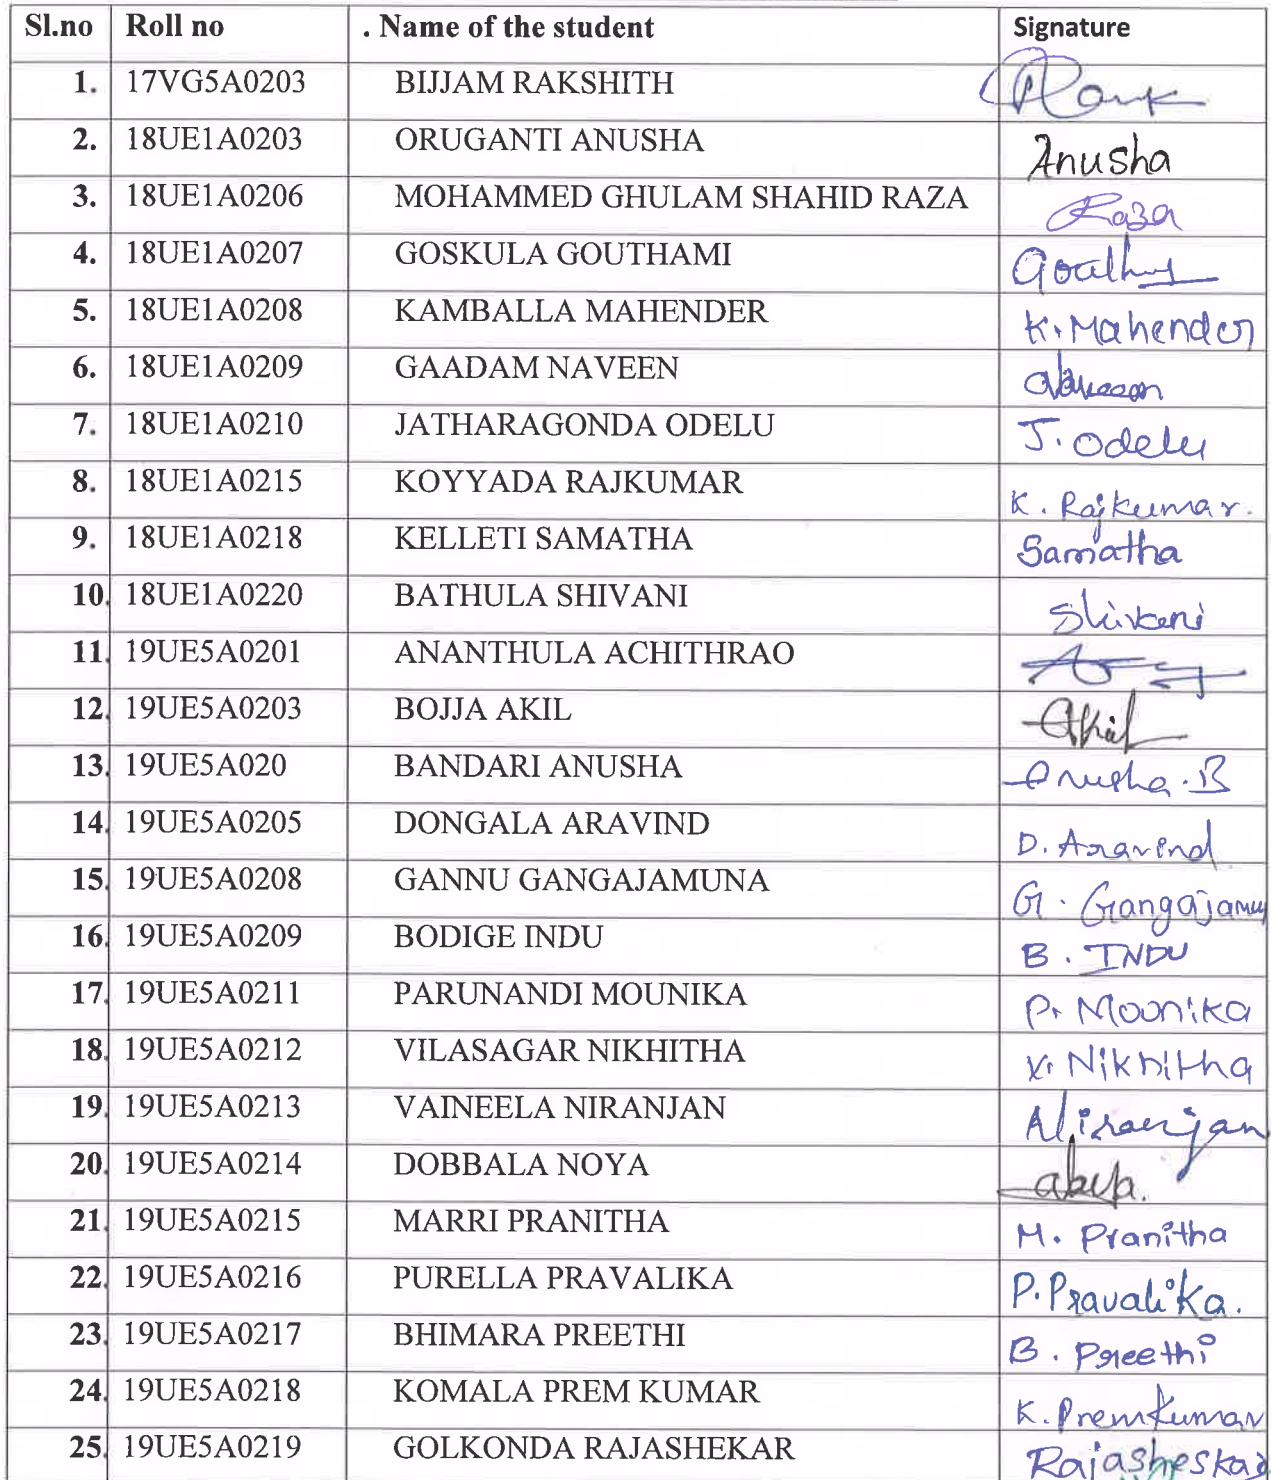 Sl.no Roll no . Name of the student Signature
1. 17VG5A0203 BIJJAM RAKSHITH
2. 18UE1A0203 ORUGANTI ANUSHA Anusha
3. 18UE1A0206 MOHAMMED GHULAM SHAHID RAZA Raza
4. 18UE1A0207 GOSKULA GOUTHAMI
5. 18UE1A0208 KAMBALLA MAHENDER K. Mahender
6. 18UE1A0209 GAADAM NAVEEN
7. 18UE1A0210 JATHARAGONDA ODELU J. Odelu
8. 18UE1A0215 KOYYADA RAJKUMAR K. Rajkumar.
9. 18UE1A0218 KELLETI SAMATHA Samatha
10. 18UE1A0220 BATHULA SHIVANI Shivani
11. 19UE5A0201 ANANTHULA ACHITHRAO
12. 19UE5A0203 BOJJA AKIL Akil
13. 19UE5A020 BANDARI ANUSHA Anusha.B
14. 19UE5A0205 DONGALA ARAVIND D. Aravind
15. 19UE5A0208 GANNU GANGAJAMUNA G. Gangajamu
16. 19UE5A0209 BODIGE INDU B. INDU
17. 19UE5A0211 PARUNANDI MOUNIKA P. Moonika
18. 19UE5A0212 VILASAGAR NIKHITHA V. Nikhitha
19. 19UE5A0213 VAINEELA NIRANJAN Niranjan
20. 19UE5A0214 DOBBALA NOYA
21. 19UE5A0215 MARRI PRANITHA M. Pranitha
22. 19UE5A0216 PURELLA PRAVALIKA P. Pravalika.
23. 19UE5A0217 BHIMARA PREETHI B. Preethi
24. 19UE5A0218 KOMALA PREM KUMAR K. Premkumar
25. 19UE5A0219 GOLKONDA RAJASHEKAR Rajasheskar